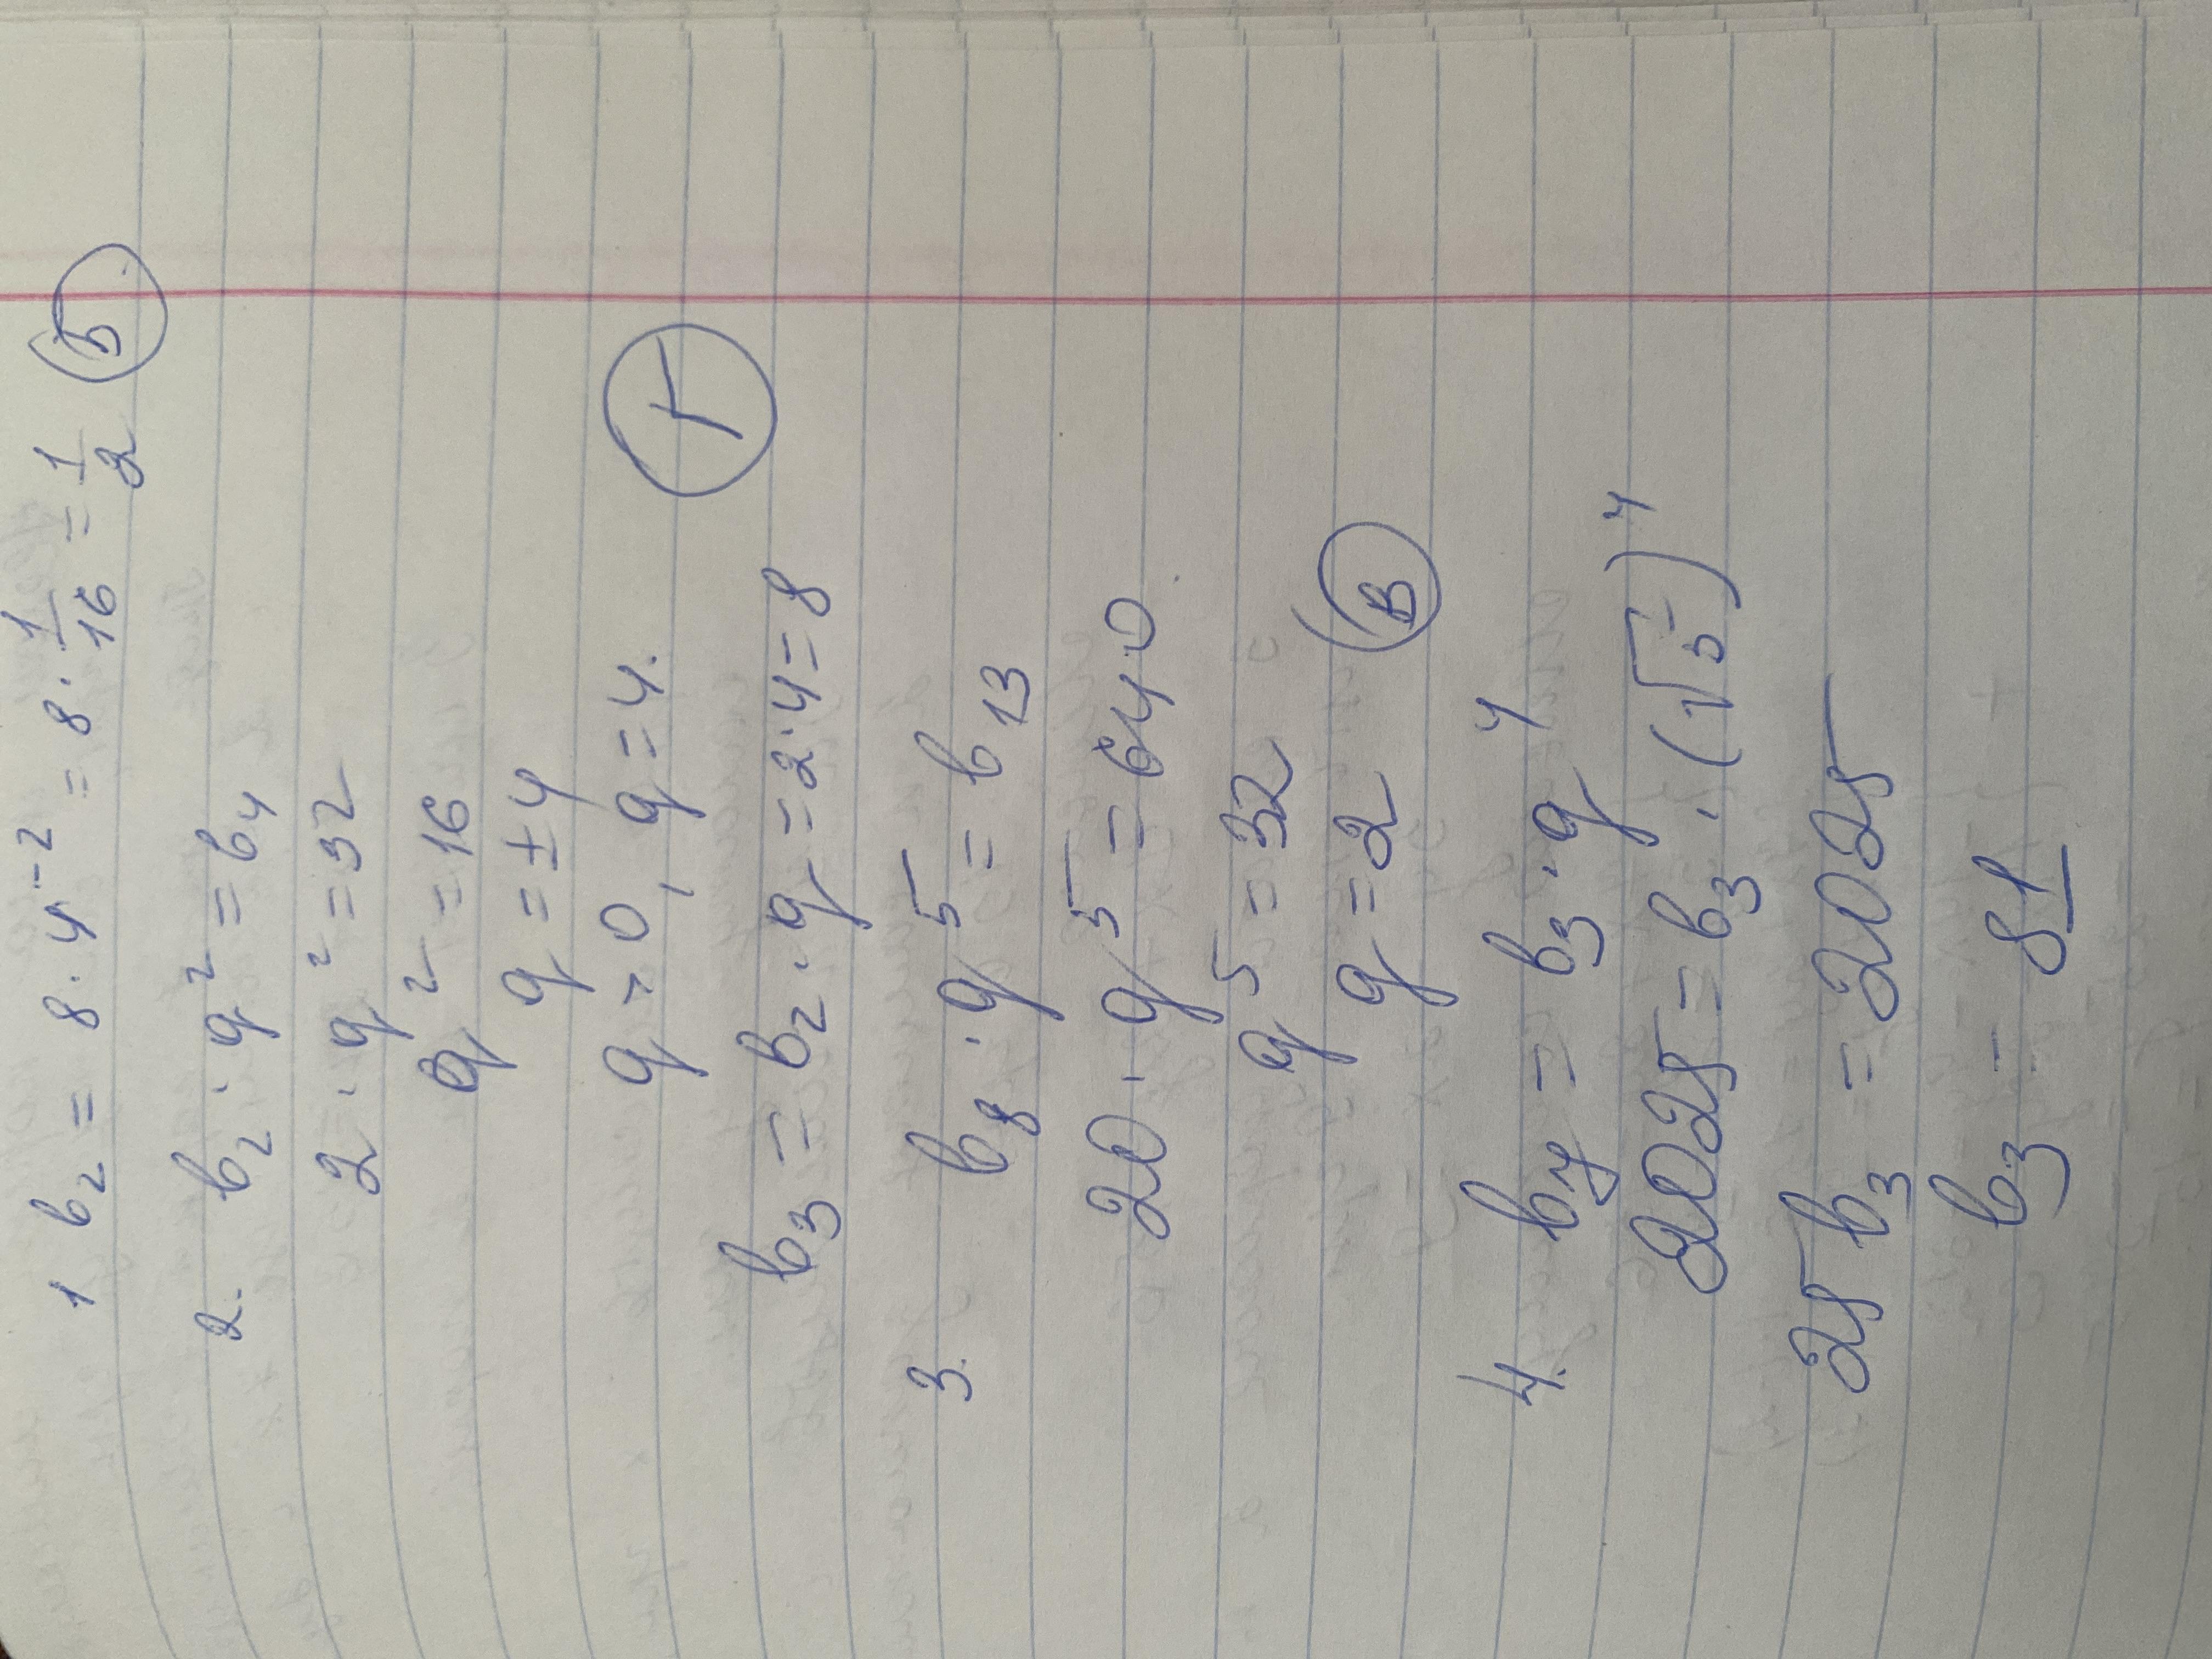 1 b₂ = 8 · 4⁻² = 8 · 1/16 = 1/2 Б
2. b₂ · q² = b₄
2 · q² = 32
q² = 16
q = ±4
q > 0, q = 4. Г
b₃ = b₂ · q = 2 · 4 = 8
3. b₈ · q⁵ = b₁₃
20 · q⁵ = 640
q⁵ = 32
q = 2 В
4. b₇ = b₃ · q⁴
2025 = b₃ · (√5)⁴
25 b₃ = 2025
b₃ = 81